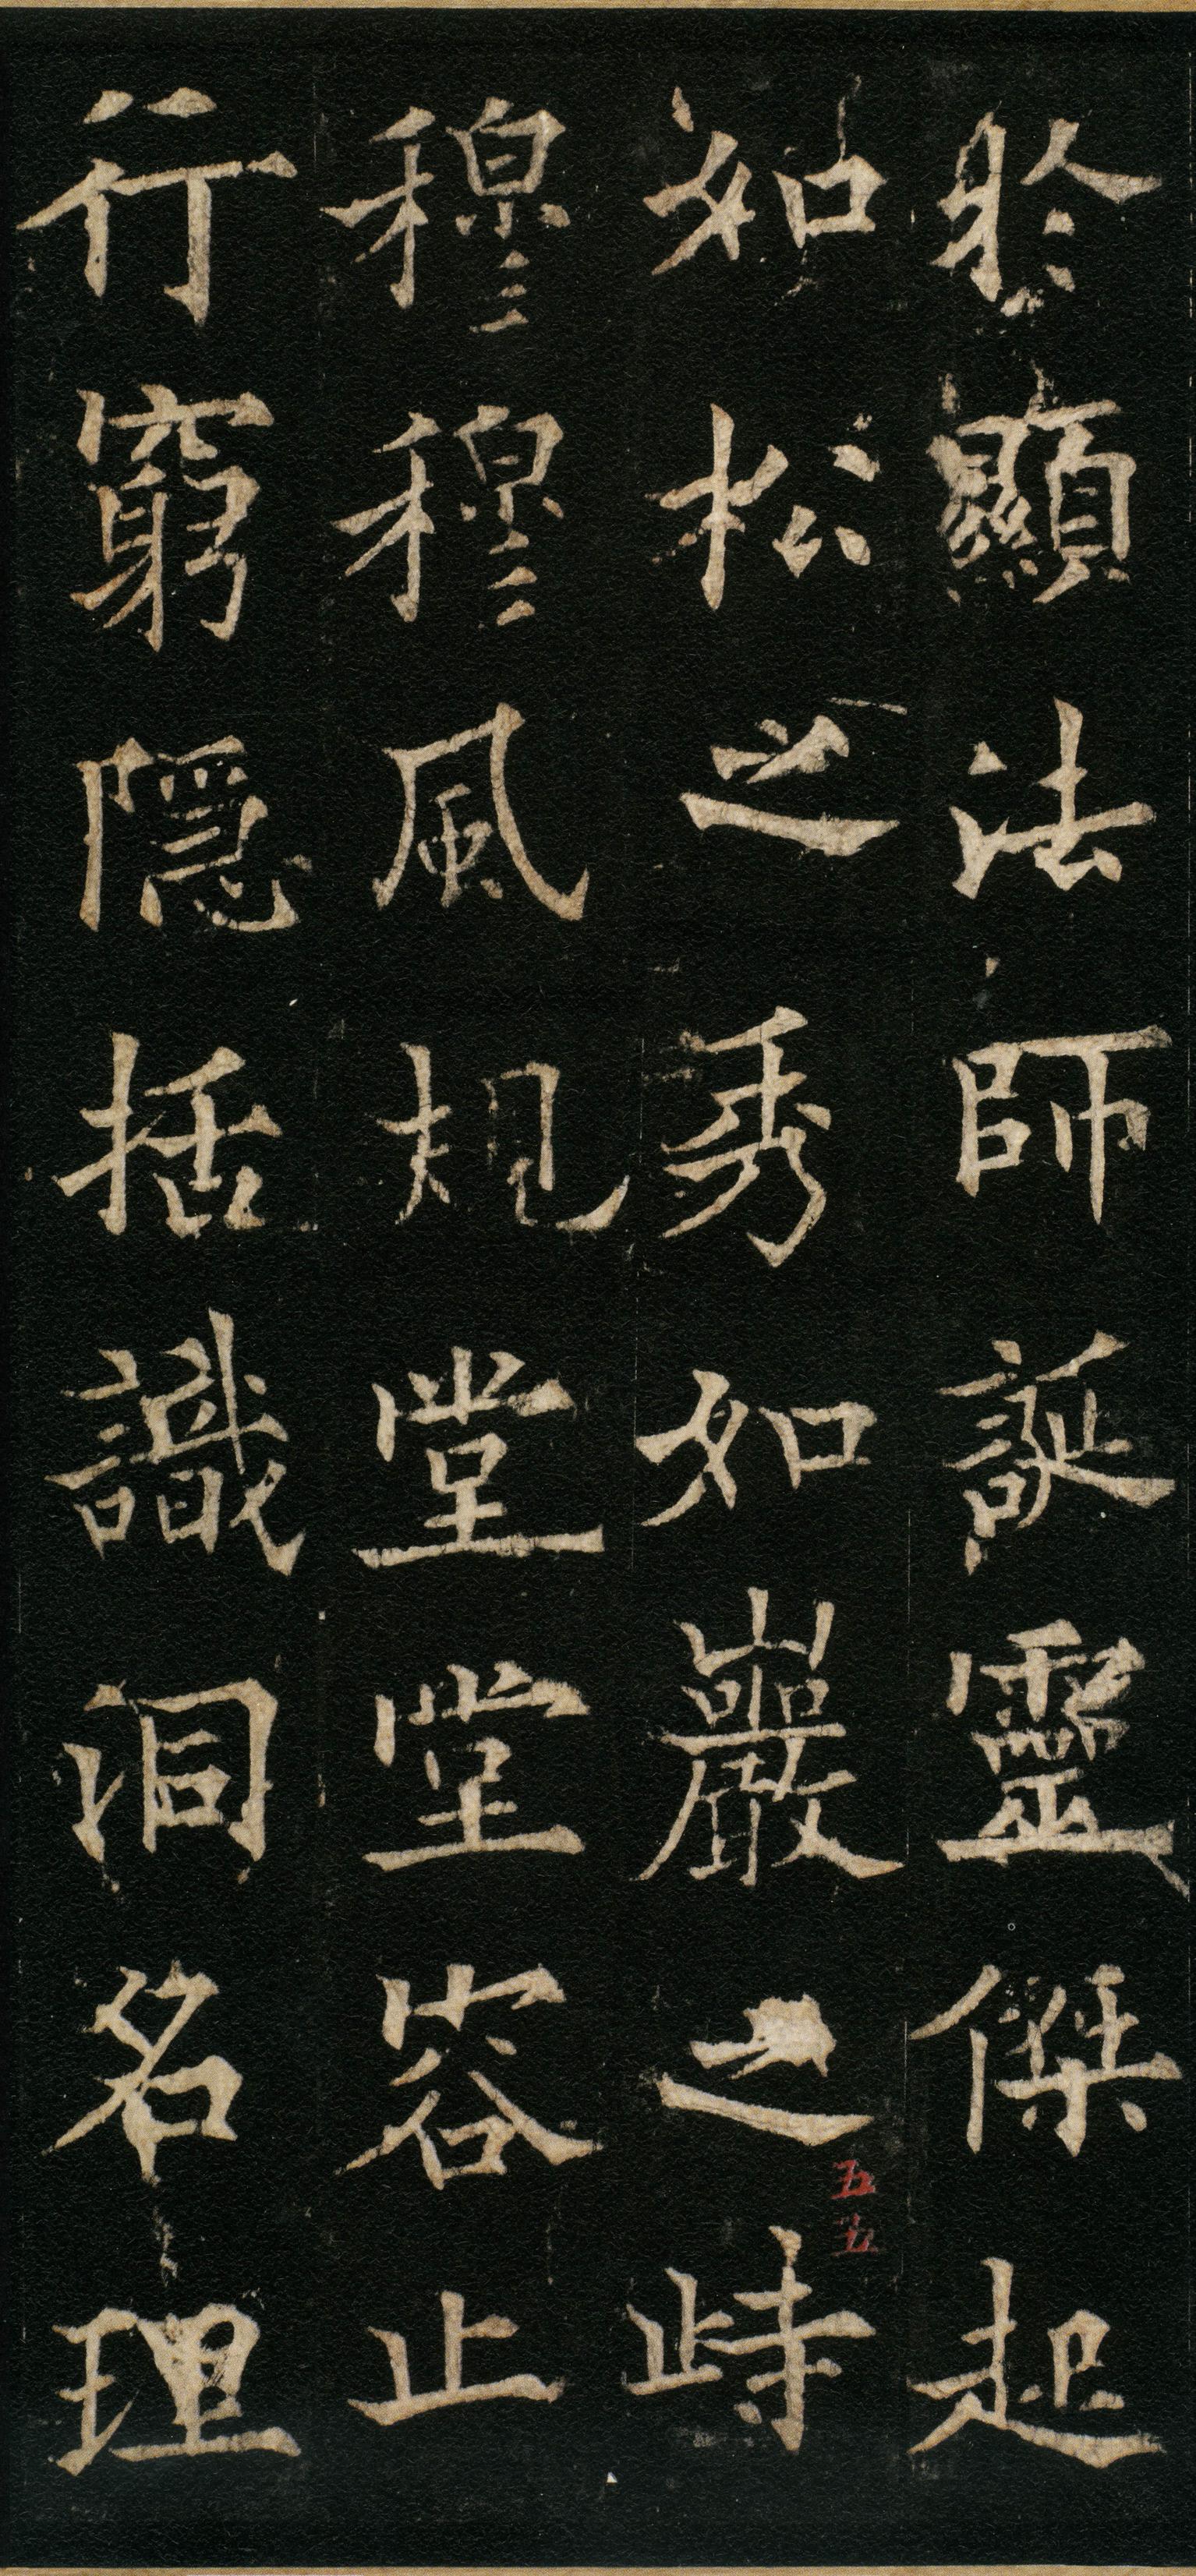 於顯法師誕靈傑起
如松之秀如巖之峙
穆穆風規堂堂容止
行窮隱括識洞名理
五五